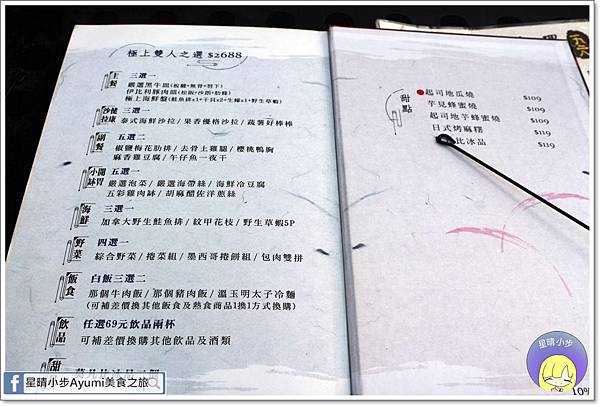 極上雙人之選 $2688
主餐 三選一
嚴選黑牛間(板腱+無骨+翼下)
伊比利豚肉間(松阪+沙朗+肋條)
極上海鮮盤(鮭魚排x1+干貝x2+生蠔x1+野生草蝦)
沙拉 健康 三選一
泰式海鮮沙拉/果香優格沙拉/蔬薯好棒棒
副餐 五選二
椒鹽梅花肋排/去骨土雞腿/櫻桃鴨胸
麻香雞豆腐/午仔魚一夜干
小缽 開胃 五選一
嚴選泡菜/嚴選海帶絲/海鮮冷豆腐
五彩雞肉缽/胡麻醋佐洋蔥絲
海鮮 三選一
加拿大野生鮭魚排/紋甲花枝/野生草蝦5P
野菜 四選一
綜合野菜/捲菜組/墨西哥捲餅組/包肉雙拼
飯食 白飯三選二
那個牛肉飯/那個豬肉飯/溫玉明太子冷麵
(可補差價換其他飯食及熱食商品1換1方式換購)
飲品 任選69元飲品兩杯
可補差價換其他飲品及酒類
甜
甜點
起司地瓜燒 $109
芋見蜂蜜燒 $109
起司地芋蜂蜜燒 $109
日式烤麻糬 $119
比冰品 $119
星晴小步
星晴小步Ayumi美食之旅
10%